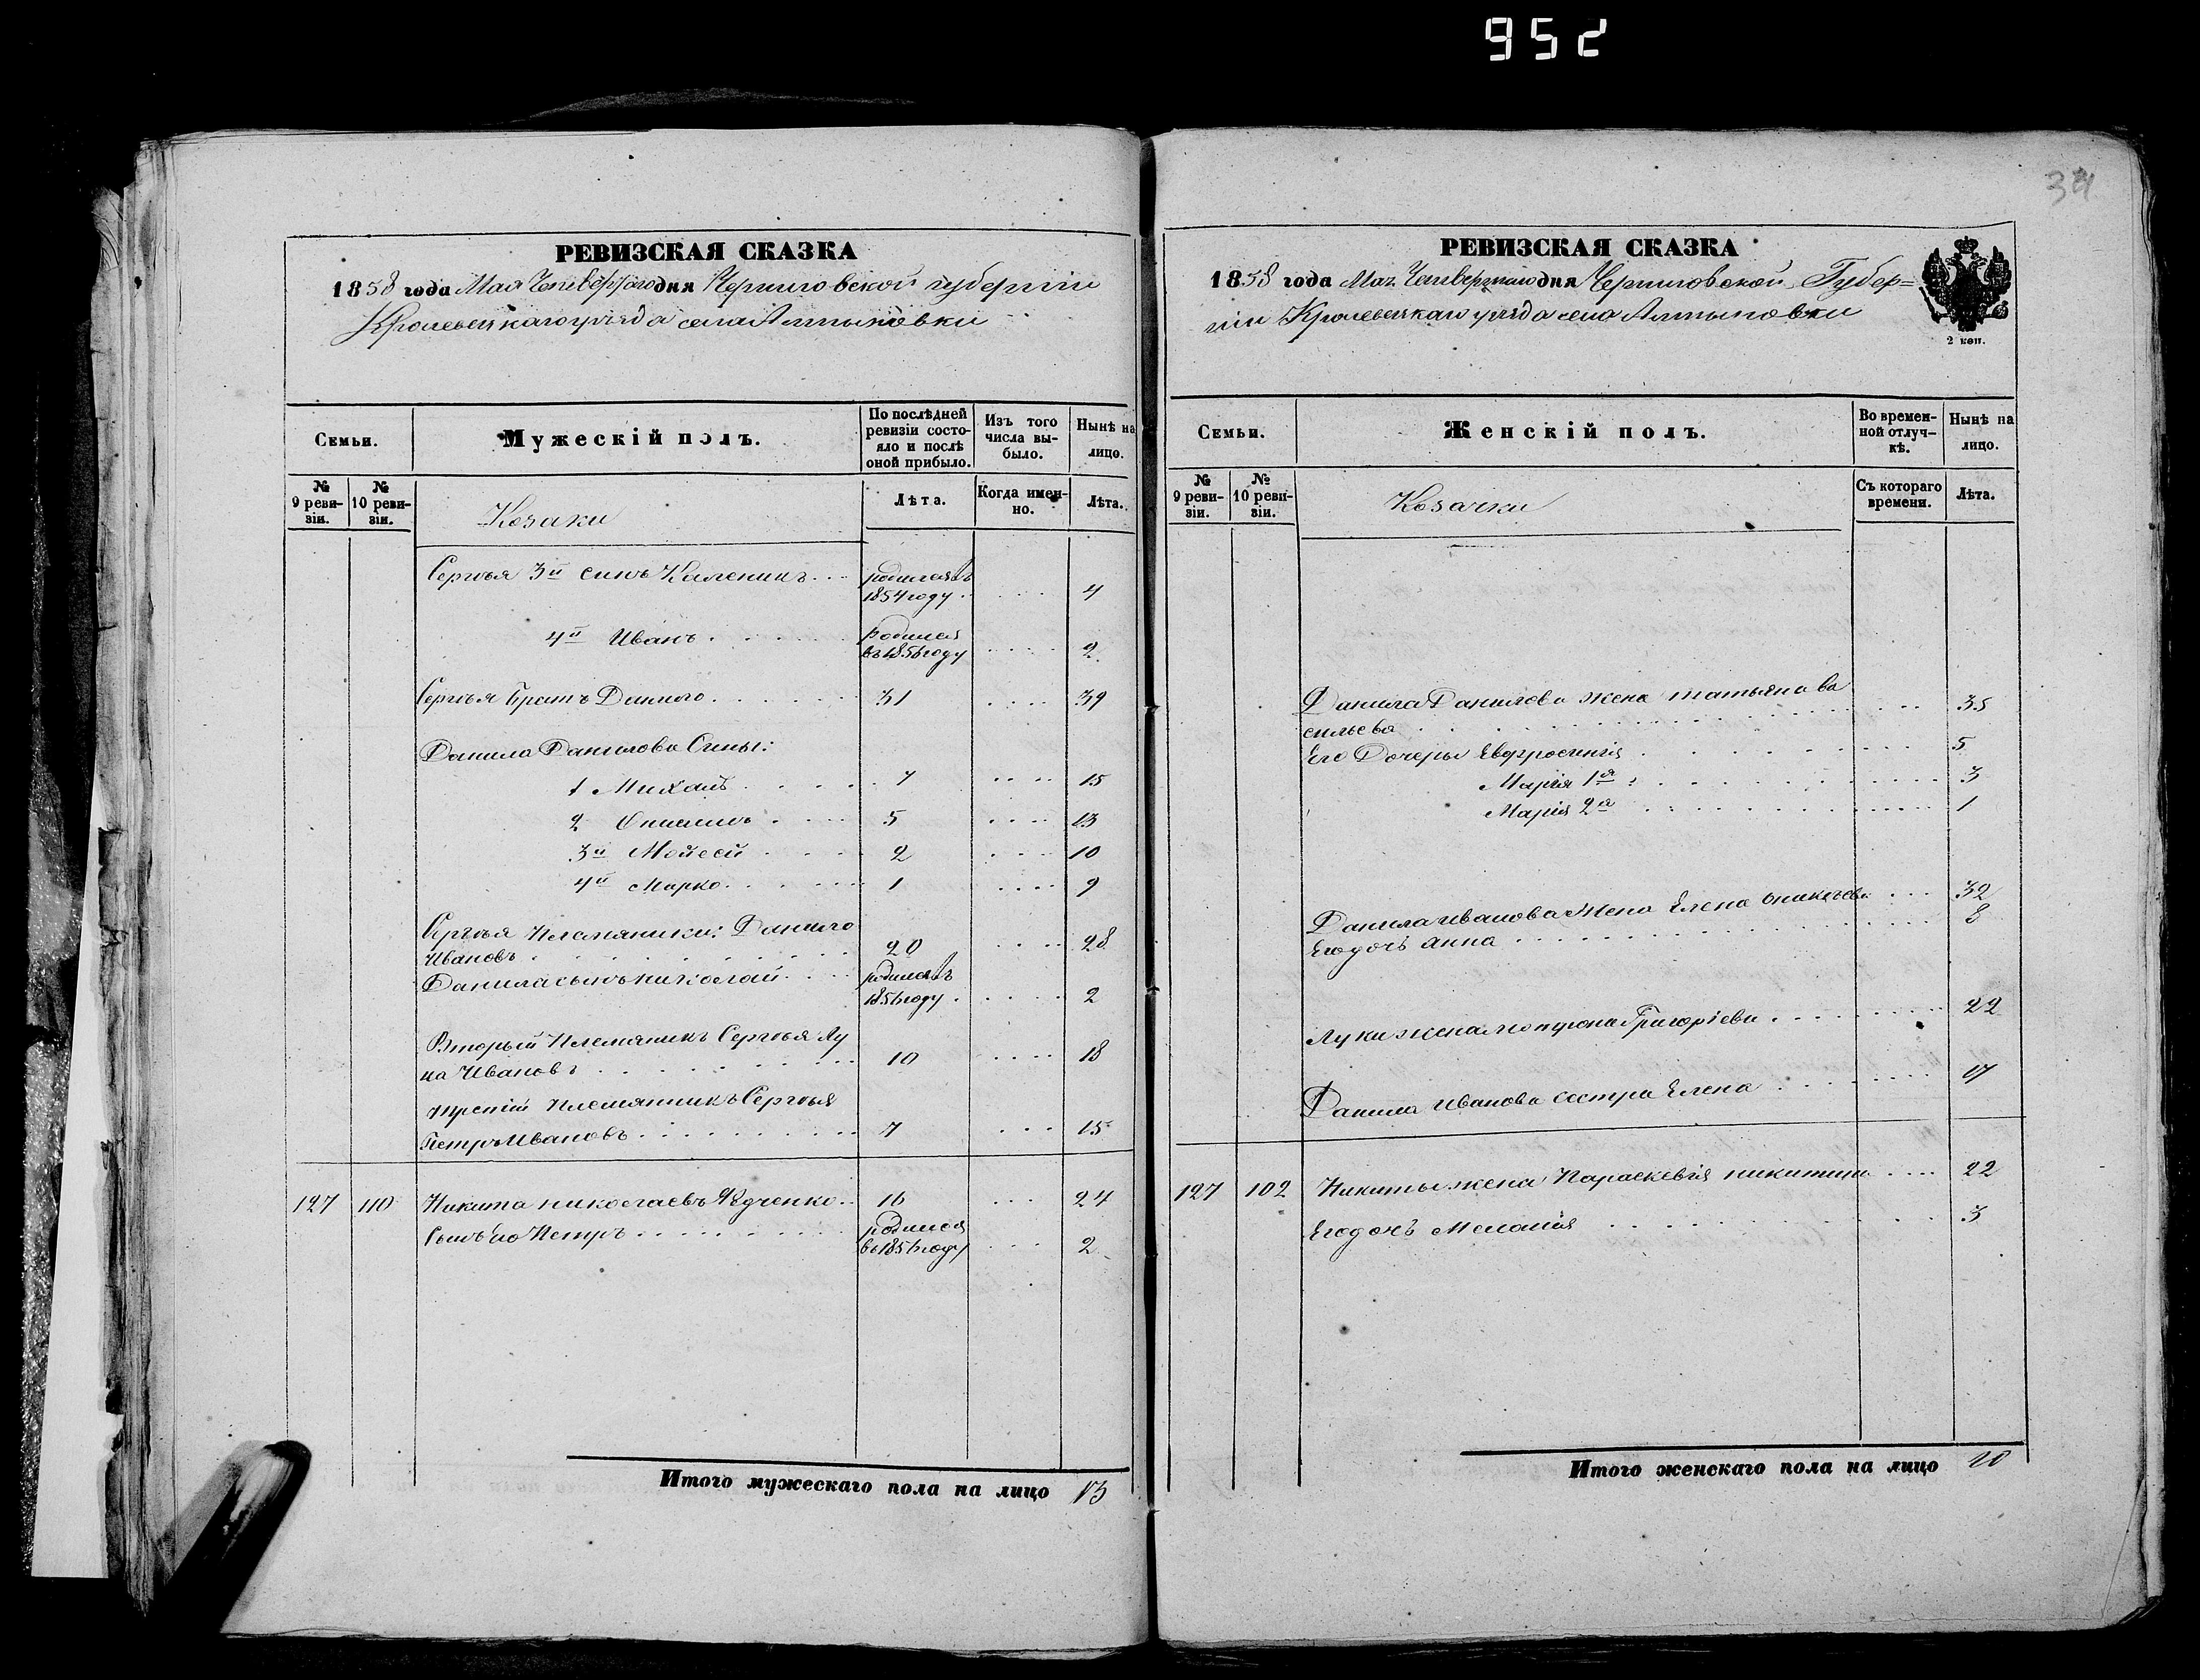 952
34
РЕВИЗСКАЯ СКАЗКА
1858 года Мая Четвертаго дня Черниговской губернiи
Кролевецкаго уѣзда села Алтыновки
Семьи.
Мужескiй полъ.
По послѣдней ревизiи состояло и послѣ оной прибыло.
Изъ того числа выбыло.
Нынѣ на лицо.
№ 9 ревизiи.
№ 10 ревизiи.
Козаки
Лѣта.
Когда именно.
Лѣта.
Сергѣя 3й синъ Каленикъ . . . родился въ 1854 году . . . . 4
4й Иванъ . . . . . родился въ 1856 году . . . . 2
Сергѣя братъ Данило . . . . . 31 . . . . 39
Данила Данилова Сины:
1 Михаилъ . . . . . 7 . . . . 15
2 . . . . 5 . . . . 13
3й Мойсей . . . . 2 . . . . 10
4й Марко . . . . . 1 . . . . 9
Сергѣя Племяники: Данило
Ивановъ . . . . . . . 20 . . . . 28
Данила сынъ Николай . . . . родился въ 1856 году . . . . . 2
Вторый Племяникъ Сергѣя Лу
ка Ивановъ . . . . . . . 10 . . . . 18
третiй Племянникъ Сергѣя
Петръ Ивановъ . . . . . . . . 7 . . . 15
127 110 Никита Николаевъ . . 16 . . . 24
Сынъ его Петръ . . . . . . . . родился въ 1856 году . . . 2
Итого мужескаго пола на лицо 13
РЕВИЗСКАЯ СКАЗКА
1858 года Мая Четвертаго дня Черниговской Губер=
нiи Кролевецкаго уѣзда села Алтыновки
2 коп.
Семьи.
Женскiй полъ.
Во временной отлучкѣ.
Нынѣ на лицо.
№ 9 ревизiи.
№ 10 ревизiи.
Козачки
Съ котораго времени.
Лѣта.
Данила Данилова жена татьяна ва
сильева . . . . . . . 35
Его Дочери Евфросинiя . . . . . . . 5
Марiя 1я . . . . . . . 3
Марiя 2я . . . . . . . 1
Данила Иванова Жена Елена . . . 32
Его дочь Анна . . . . . . . . . 8
Луки жена Григорiева . . . . . . . . 22
Данила Иванова сестра Елена . . . . . . . . 17
127 102 Никиты жена Параскевiя никитина . . . . 22
Его дочь Меланiя . . . . . . . . . 3
Итого женскаго пола на лицо 10